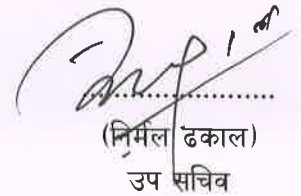 ....................
(निर्मल ढकाल)
उप सचिव